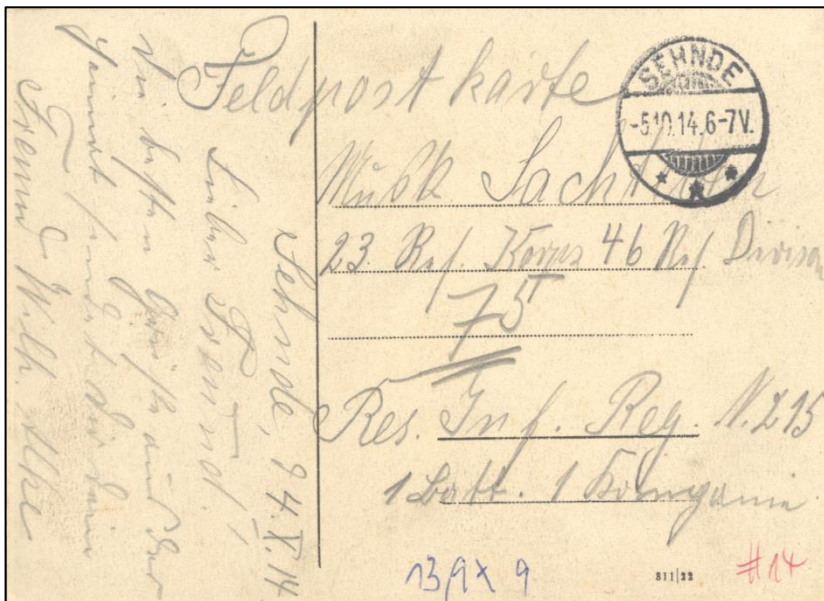 Feldpostkarte
SEHNDE
-5.10.14.6-7V.
Musk. Sachtleben
23. Res. Korps 46 Res Division
75
Res. Inf. Reg. N. 215
1 Batt. 1 Kompanie
Sehnde, 4.X.14
Lieber Freund!
Die besten Grüße aus der
Heimat sendet dir dein
Freund Wilh.
13/9x 9
311|22
#14